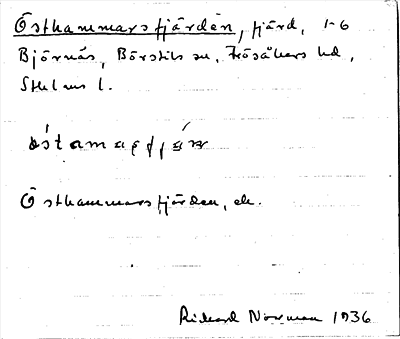 Östhammarsfjärden, fjärd, 1-6
Björnäs, Börstils sn, Frösåkers hd,
Sthlms l.
Östhammarsfjärden, ek.
Rickard Norman 1936